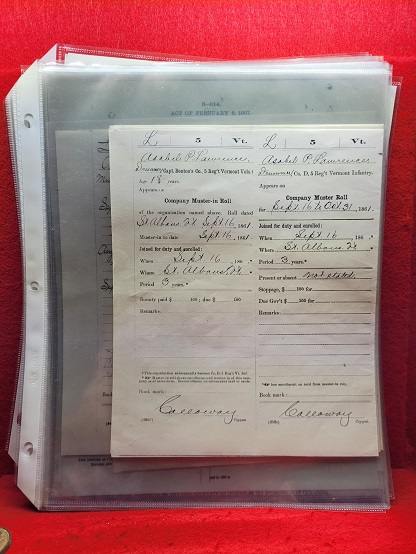 ACT OF FEBRUARY 6, 1907.
L 5 Vt.
Asahel P. Lawrence,
Drummer, Capt. Benton's Co., 5 Reg't Vermont Vols.
Age 18 years.
Appears on
Company Muster-in Roll
of the organization named above. Roll dated
St. Albans, Vt. Sept. 16, 1861.
Muster-in to date Sept. 16, 1861.
Joined for duty and enrolled:
When Sept. 16, 186
Where St. Albans, Vt.
Period 3 years.*
Bounty paid $ 100; due $ 100
Remarks:
Book mark:
Calloway
Copyist.
L 5 Vt.
Asahel P. Lawrence
Drummer, Co. D, 5 Reg't Vermont Infantry.
Appears on
Company Muster Roll
for Sept. 16 to Oct. 31, 1861.
Joined for duty and enrolled:
When Sept. 16, 186 *
Where St. Albans, Vt.
Period 3 years.*
Present or absent Not stated.
Stoppage, $ 100 for
Due Gov't $ 100 for
Remarks:
Book mark:
Calloway
Copyist.